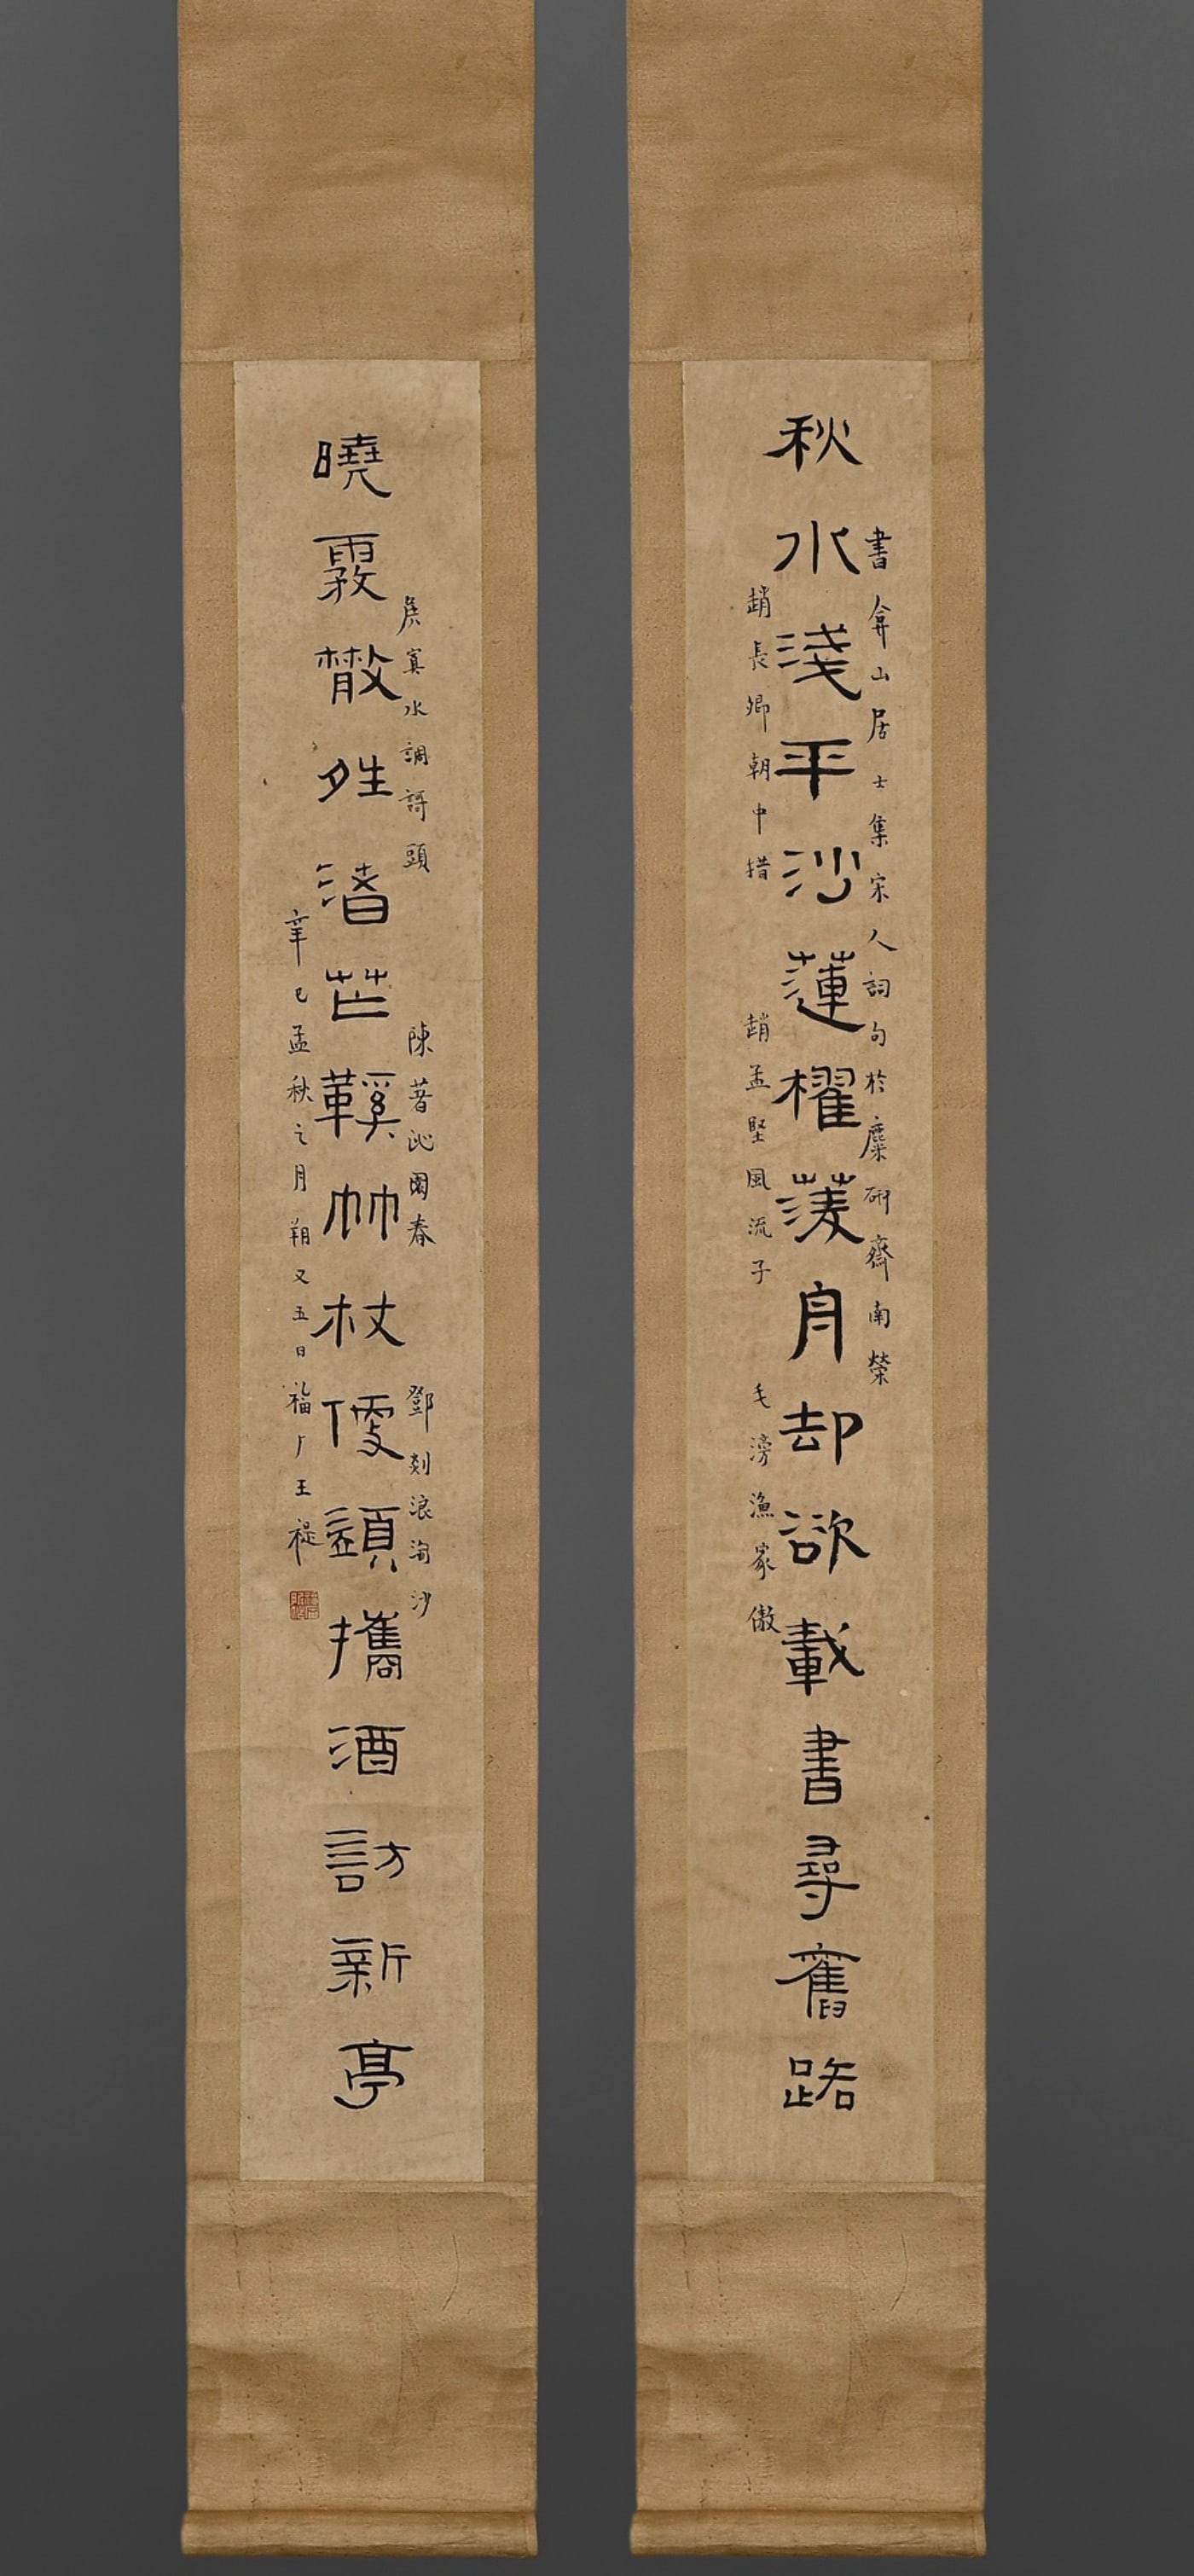 書弇山居士集宋人詞句於麋研齋南榮
秋水淺平沙蓮櫂蔆舟却欲載書尋舊路
趙長卿朝中措 趙孟堅風流子 毛滂漁家傲
侯寘水調謌頭 陳著沁園春 鄧剡浪淘沙
曉霚散夝渚芒鞵竹杖便須攜酒訪新亭
辛巳孟秋之月朔又五日福厂王禔